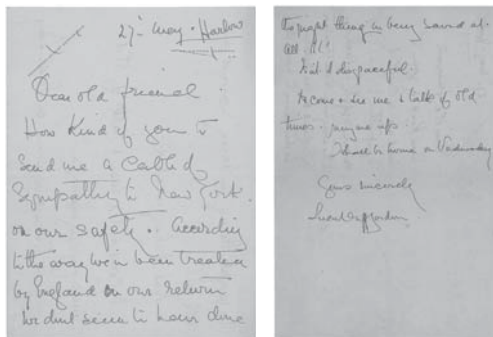 27th May. Harlow
Dear old friend
How Kind of you to
send me a Cable of
Sympathy to New York.
on our safety. According
to the way we've been treated
by England on our return
we didnt seem to have done
the right thing in being saved at
all !!!!
Isnt it disgraceful.
times. ring me up
I shall be home on Wednesday
Yours sincerely